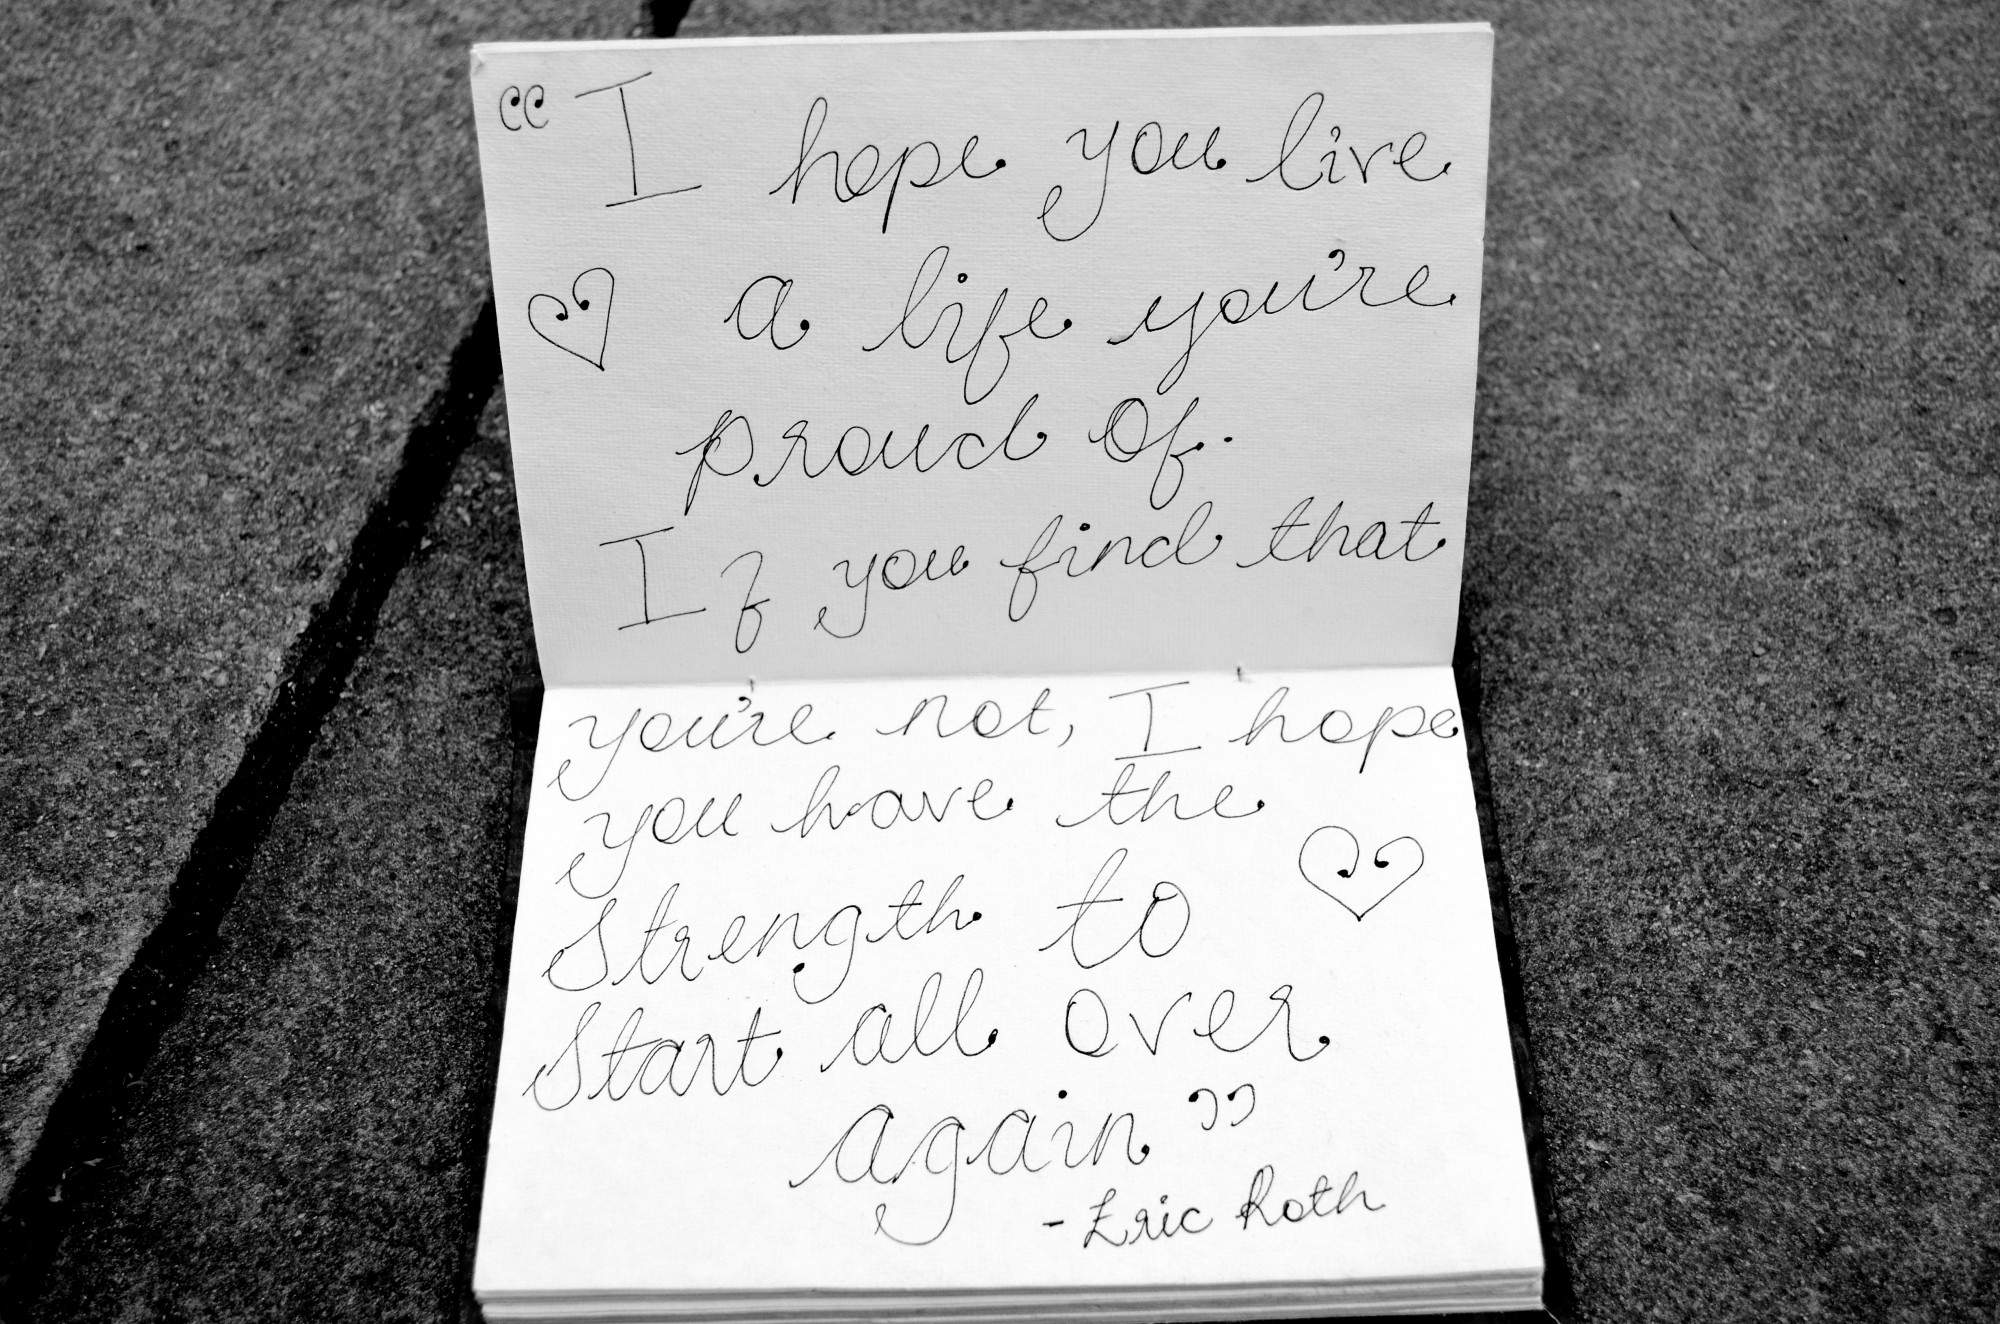 “I hope you live
a life you're
proud of.
If you find that
you're not, I hope
you have the
Strength to
Start all over
again”
- Eric Roth